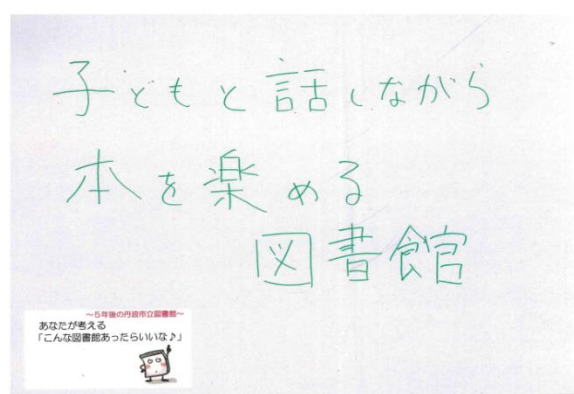 子どもと話しながら
本を楽める
図書館
～5年後の丹波市立図書館～
あなたが考える
「こんな図書館あったらいいな♪」